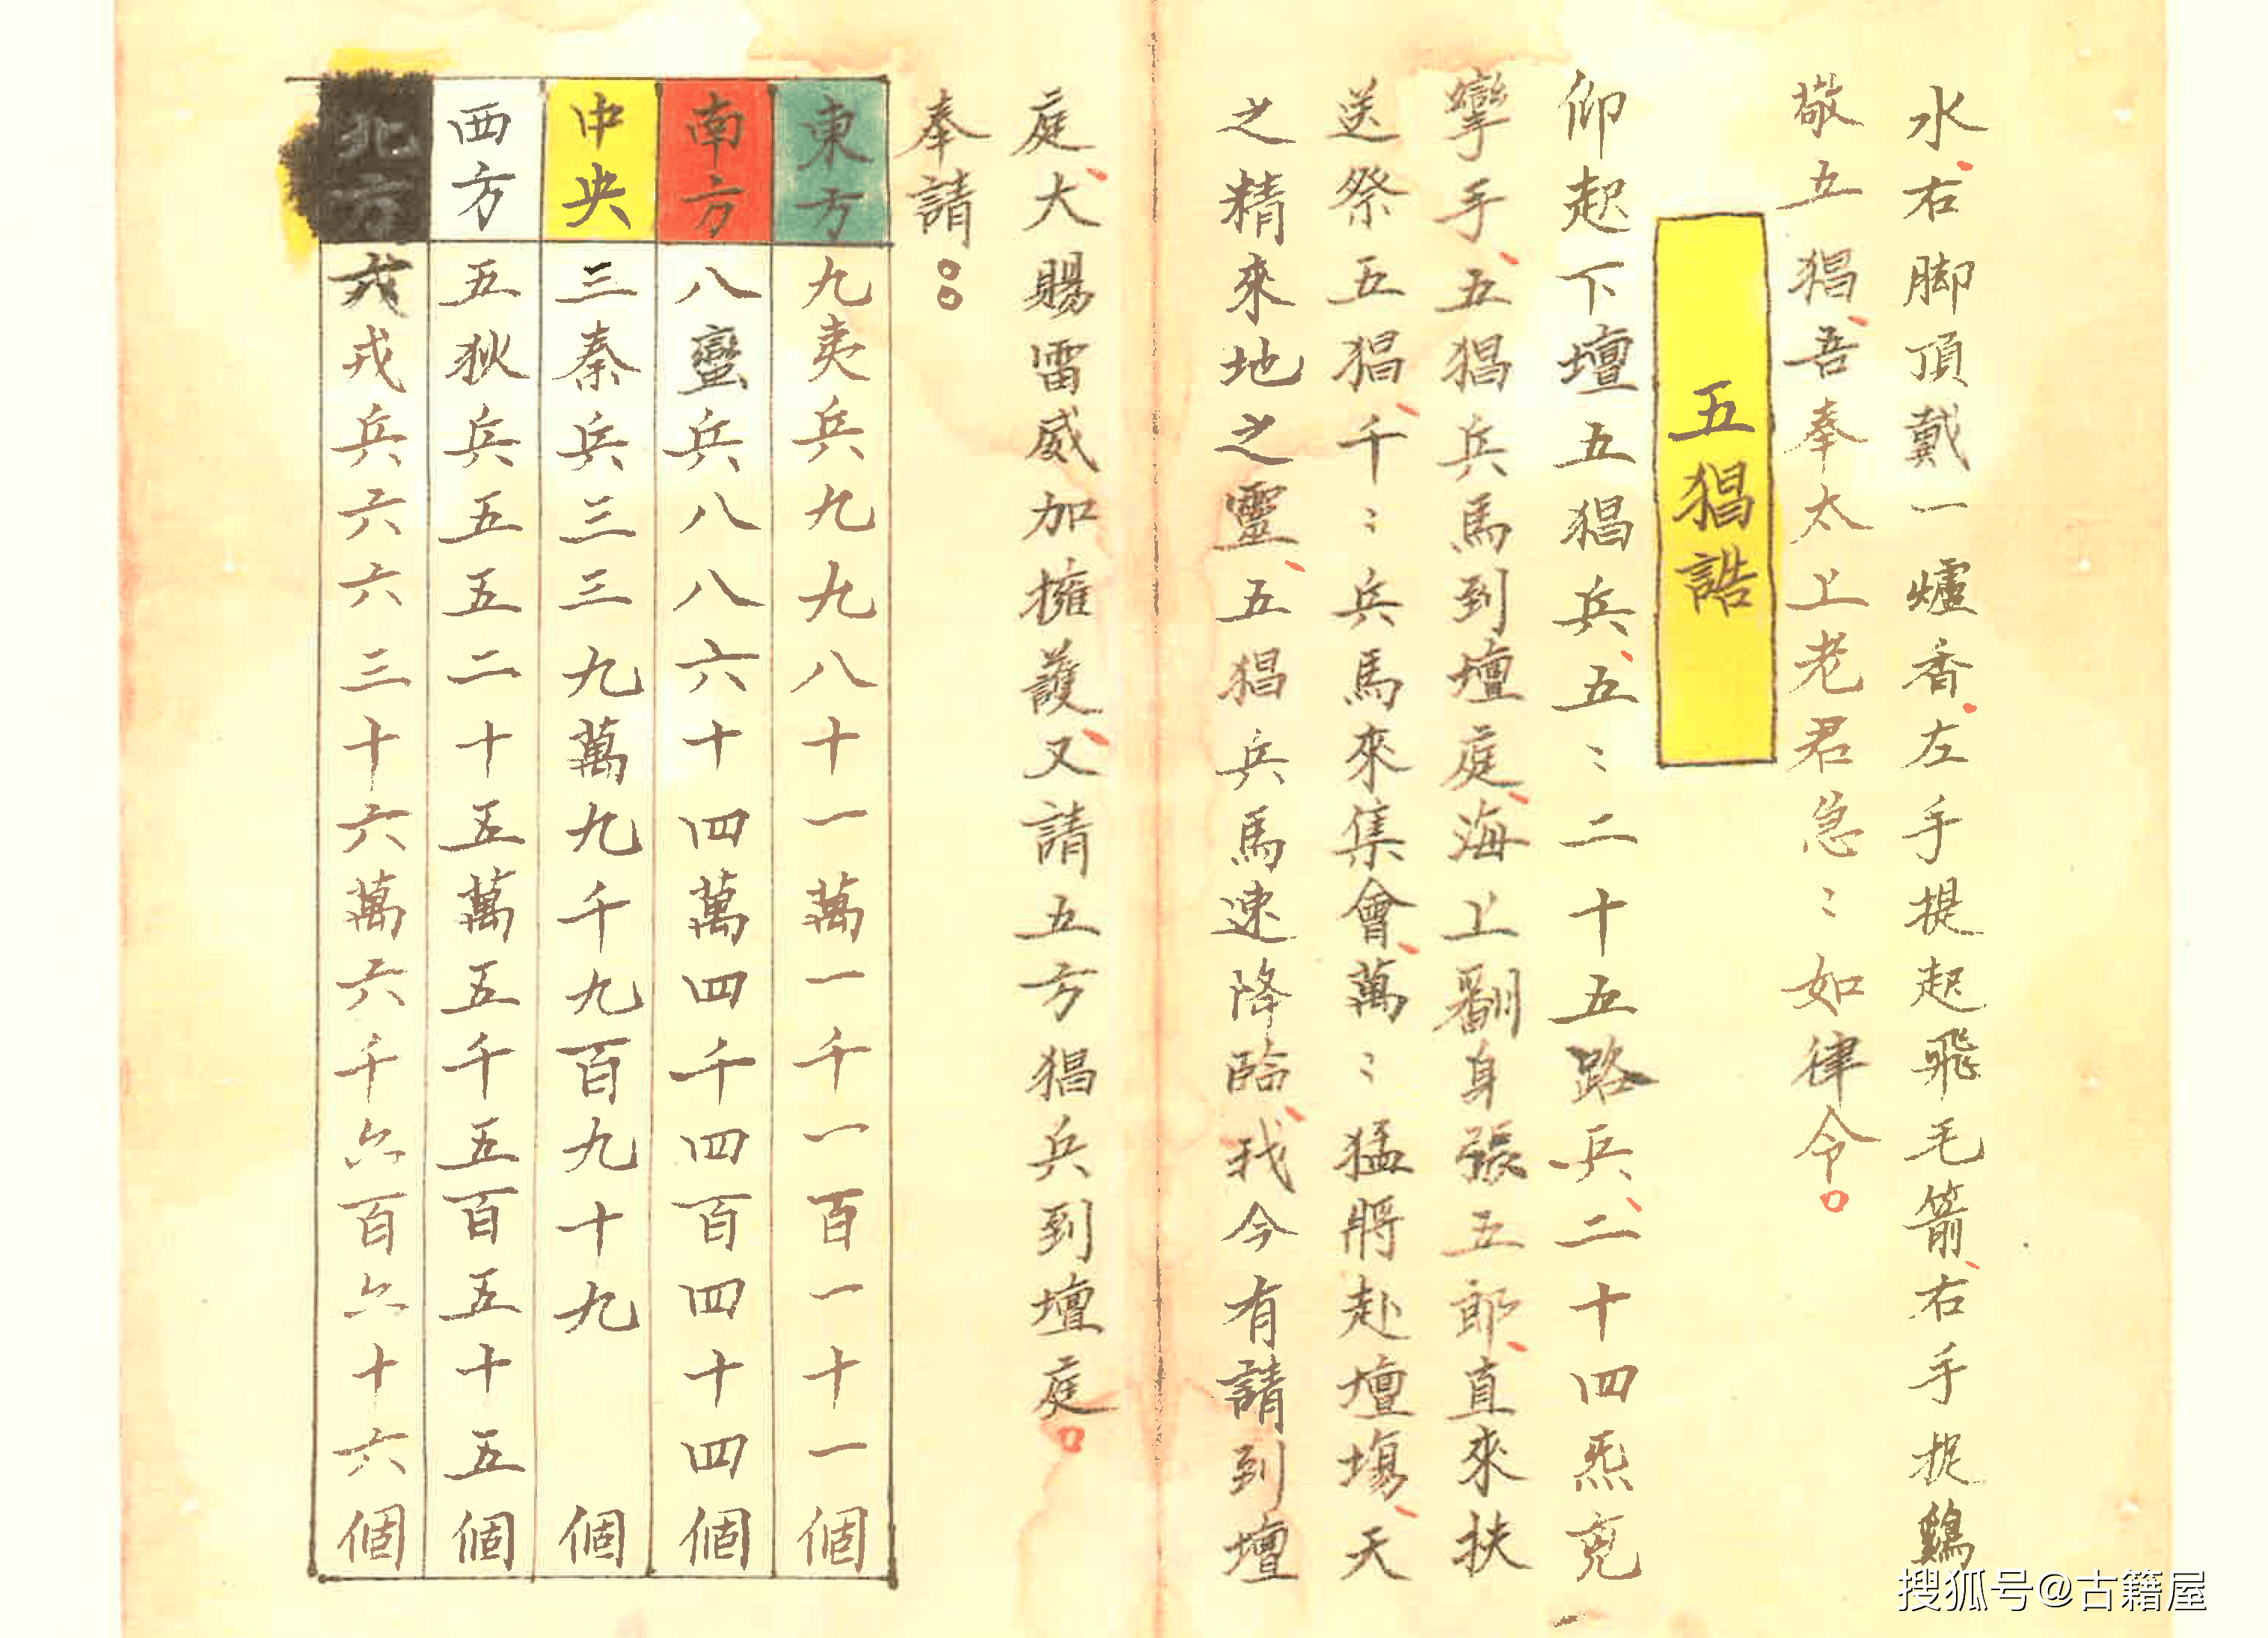 水右脚頂戴一爐香左手提起飛毛箭右手捉鷄
敬五猖吾奉太上老君急〻如律令
五猖誥
仰起下壇五猖兵五〻二十五路兵二十四炁
攣手五猖兵馬到壇庭海上翻身張五郎直來扶
送祭五猖千〻兵馬來集會萬〻猛將赴壇塲天
之精來地之靈五猖兵馬速降臨我今有請到壇
庭大賜雷威加擁護又請五方猖兵到壇庭
奉請
東方 九夷兵九九八十一萬一千一百一十一個
南方 八蠻兵八八六十四萬四千四百四十四個
中央 三秦兵三三九萬九千九百九十九個
西方 五狄兵五五二十五萬五千五百五十五個
北方 六戎兵六六三十六萬六千六百六十六個
搜狐号@古籍屋